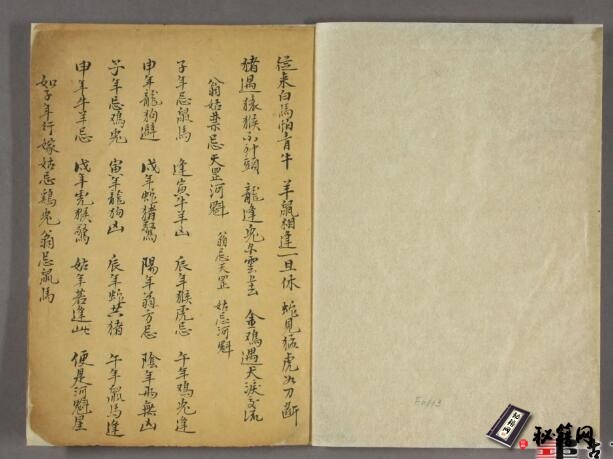 従来白馬怕青牛 羊鼠相逢一旦休 蛇見猛虎如刀断
猪遇猿猴不到頭 龍逢兎 雲去 金鸡遇犬淚交流
翁姑禁忌天罡河魁 翁忌天罡 姑忌河魁
子年忌鼠馬 逢寅牛羊凶 辰年猴虎忌 午年鸡兎逢
申年龍狗避 戌年蛇猪驚 陽年翁方忌 陰年 無凶
子年忌鸡兎 寅年龍狗凶 辰年蛇共猪 午年鼠馬逢
申年牛羊忌 戌年虎猴驚 姑年若逢此 便是河魁星
如子年行嫁姑忌鷄兎翁忌鼠馬
秘籍网